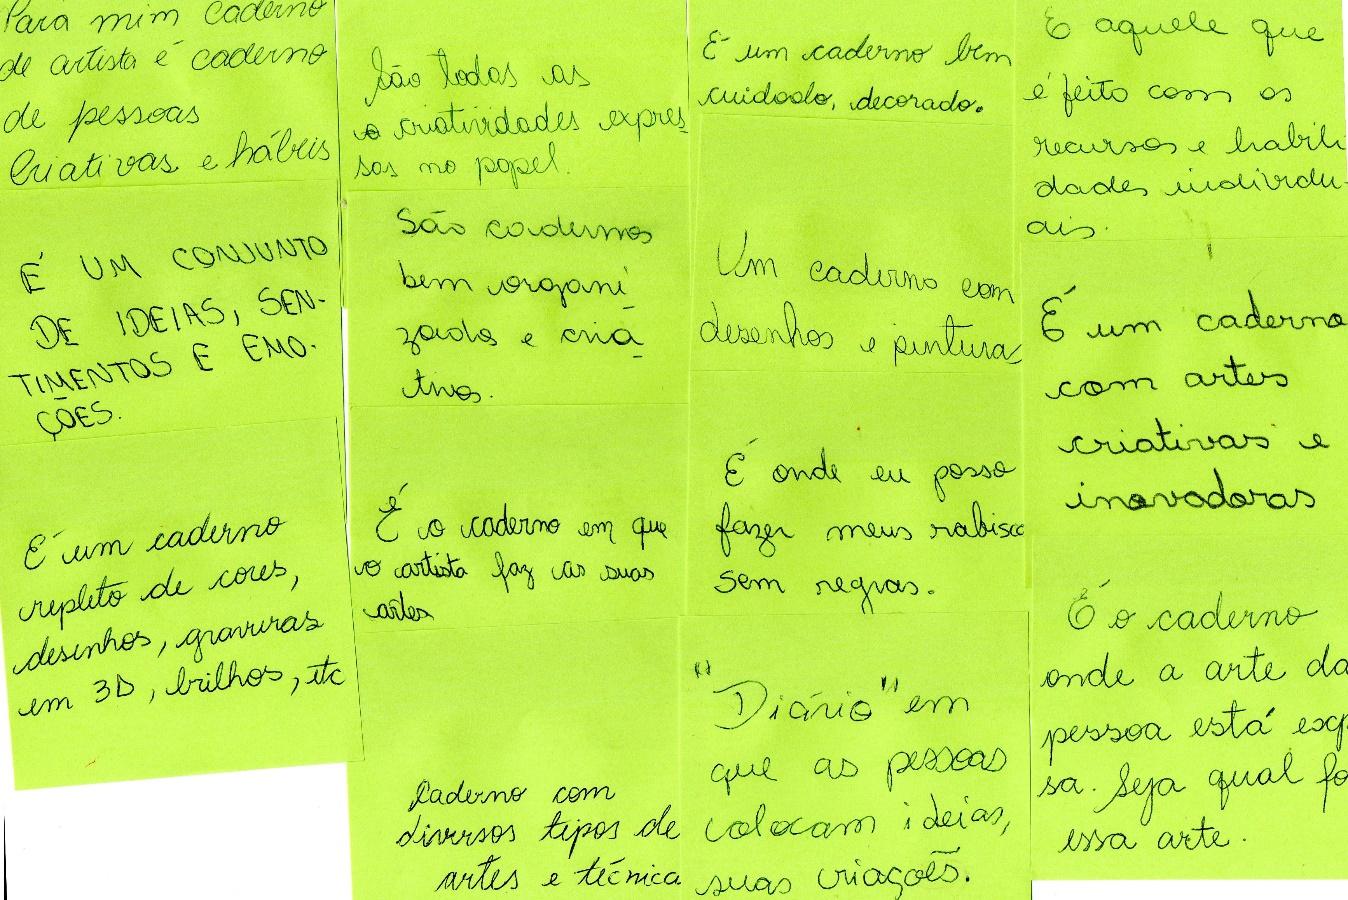 Para mim caderno
de artista é caderno
de pessoas
Criativas e hábeis
É UM CONJUNTO
DE IDEIAS, SEN-
TIMENTOS E EMO-
ÇÕES.
É um caderno
repleto de cores,
desenhos, gravuras
em 3D, brilhos, etc
São todas as
criatividades expres
sas no papel.
São cadernos
bem organi
zados e cria
tivos.
É o caderno em que
o artista faz as suas
artes
Caderno com
diversos tipos de
artes e técnica
É um caderno bem
cuidado, decorado.
Um caderno com
desenhos e pintura
É onde eu posso
fazer meus rabisco
sem regras.
"Diário" em
que as pessoas
colocam ideias,
suas criações.
É aquele que
é feito com os
recursos e habili
dades individu-
ais.
É um caderno
com artes
criativas e
inovadoras
É o caderno
onde a arte da
pessoa está exp
sa. Seja qual fo
essa arte.